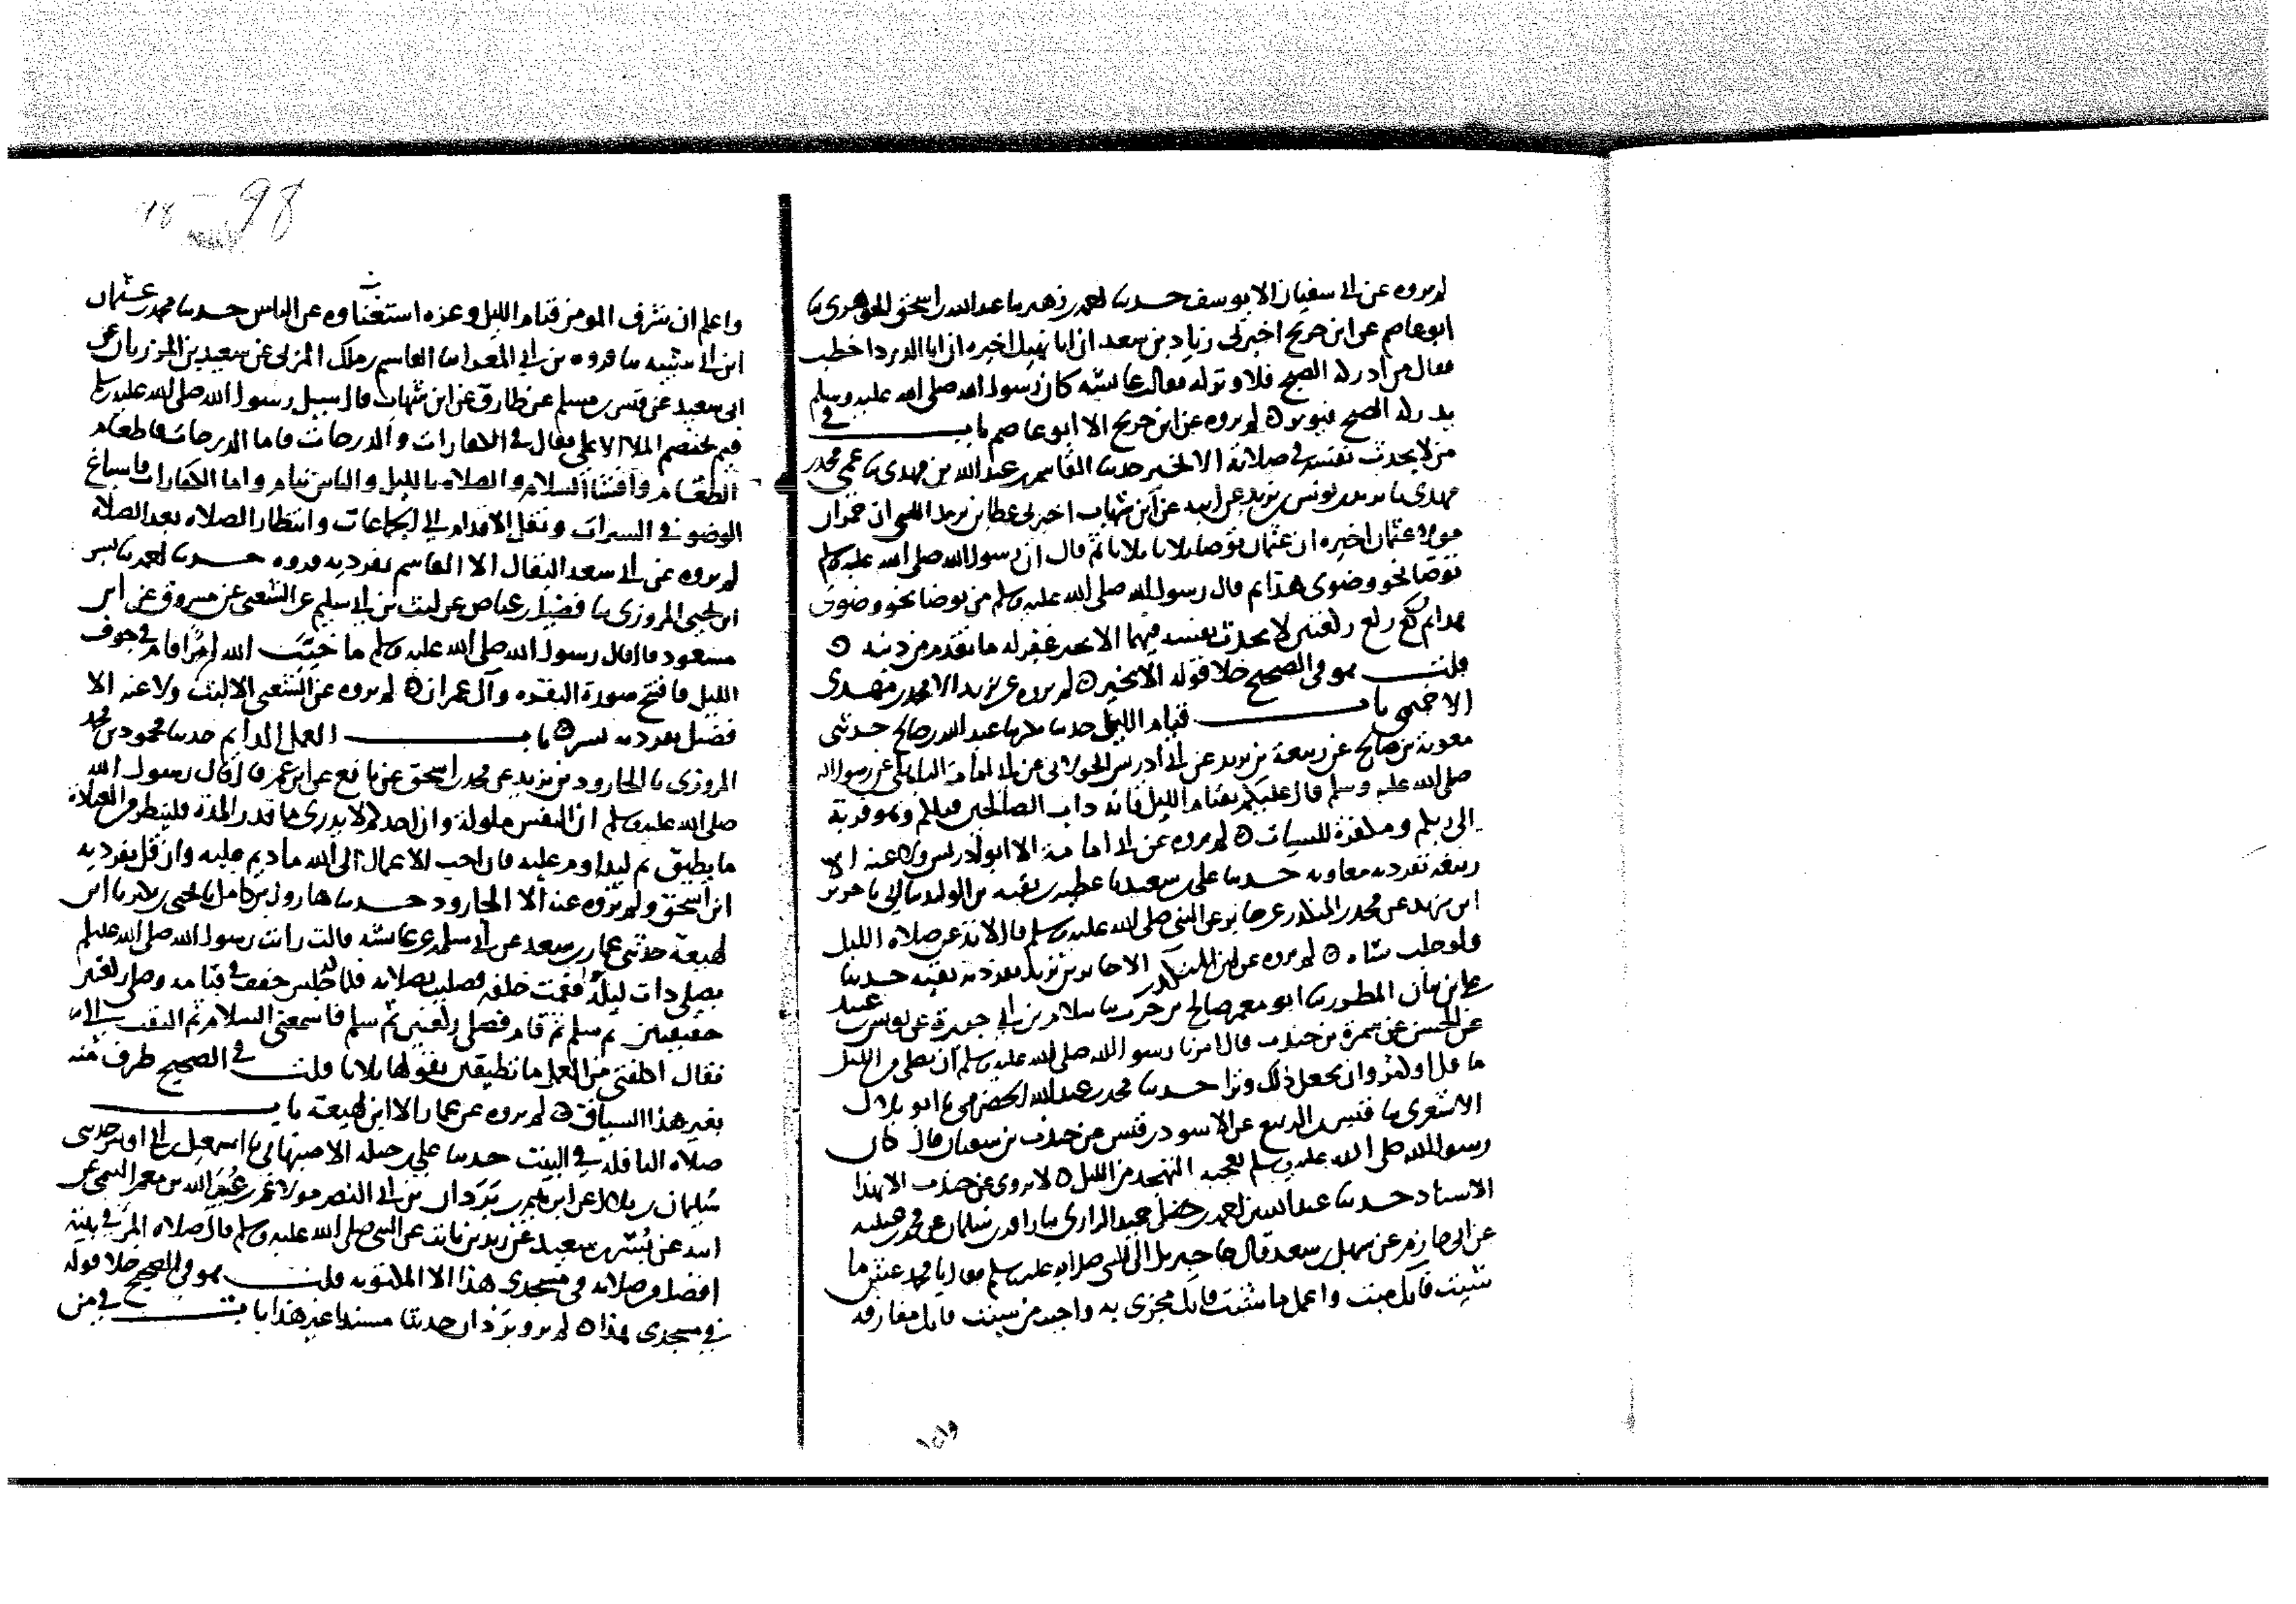 لم يروه عن أبي سفيان الا ابو يوسف حدثنا احمد بن زهير ثنا عبد الله بن اسحق الجوهري ثنا
ابو عاصم عن ابن جريج اخبرني زياد بن سعد ان ابا نهيك اخبره ان ابا الدرداء خطب
فقال من ادركه الصبح فلا وتر له فقالت عائشة كان رسول الله صلى الله عليه وسلم
يدركه الصبح فيوتر لم يروه عن ابن جريج الا ابو عاصم باب في
من لا يحدث نفسه في صلاته الا بخير حدثنا القاسم بن عبد الله بن مهدي ثنا عمي محمد بن
مهدي ثنا يونس بن يزيد عن ابن شهاب اخبرني عطا بن يزيد الليثي ان حمران
مولى عثمان اخبره ان عثمان توضا ثلاثا ثلاثا ثم قال ان رسول الله صلى الله عليه وسلم
توضا نحو وضوي هذا ثم قال رسول الله صلى الله عليه وسلم من توضا نحو وضوي
هذا ثم ركع ركعتين لا يحدث نفسه فيهما الا بخير غفر له ما تقدم من ذنبه
قلت هو في الصحيح خلا قوله الا بخير لم يروه عن يزيد الا محمد بن مهدي
الاخميمي باب قيام الليل حدثنا بكر ثنا عبد الله بن صالح حدثني
معوية بن صالح عن ربيعة بن يزيد عن ابي ادريس الخولاني عن ابي امامة الباهلي عن رسول الله
صلى الله عليه وسلم قال عليكم بقيام الليل فانه داب الصالحين قبلكم وهو قربة
الى ربكم ومكفرة للسيات لم يروه عن ابي امامة الا ابو ادريس ولا عنه الا
ربيعة تفرد به معاوية حدثنا علي بن سعيد ثنا عطية بن بقية بن الوليد ثنا ابي ثنا جرير
ابن يزيد عن محمد بن المنكدر عن جابر عن النبي صلى الله عليه وسلم قال لا تدعن صلاة الليل
ولو حلب شاة لم يروه عن ابن المنكدر الا جرير بن يزيد تفرد به بقية حدثنا
ابو معمر صالح بن حرب ثنا سلام بن ابي خبزة عن يونس بن عبيد
عن الحسن عن سمرة بن جندب قال امرنا رسول الله صلى الله عليه وسلم ان نصلي من الليل
ما قل او كثر وان نجعل ذلك وترا حدثنا محمد بن عبد الله الحضرمي ثنا ابو بلال
الاشعري ثنا قيس بن الربيع عن الاسود بن قيس عن جندب بن سفيان قال كان
رسول الله صلى الله عليه وسلم يعجبه التهجد من الليل لا يروى عن جندب الا بهذا
الاسناد حدثنا عبد الله بن احمد ثنا زافر بن سليمان عن محمد بن عيينة
عن ابي حازم عن سهل بن سعد قال جا جبريل الى النبي صلى الله عليه وسلم فقال يا محمد عش ما
شئت فانك ميت واعمل ما شئت فانك مجزى به واحبب من شئت فانك مفارقه
واعلم
واعلم ان شرف المومن قيام الليل وعزه استغناوه عن الناس حدثنا محمد بن عثمان
ابن ابي شيبة ثنا فروة بن ابي المغراء ثنا القاسم بن ملك المزني عن سعيد بن المرزبان عن
ابي سعيد عن قيس بن مسلم عن طارق عن ابن شهاب قال سيل رسول الله صلى الله عليه وسلم
فيم يختصم الملا الاعلى فقال في الكفارات والدرجات فاما الدرجات فاطعام
الطعام وافشا السلام والصلاه بالليل والناس نيام واما الكفارات فاسباغ
الوضو في السبرات ونقل الاقدام الى الجماعات وانتظار الصلاه بعد الصلاة
لم يروه عن ابي سعد البقال الا القاسم تفرد به فروه حدثنا احمد ثنا بشر
ابن يحيى المروزي ثنا فضيل بن عياض عن ليث بن ابي سليم عن الشعبي عن مسروق عن ابن
مسعود قال قال رسول الله صلى الله عليه وسلم ما خيب الله امرا قام في جوف
الليل فافتتح سورة البقره وآل عمران لم يروه عن الشعبي الا ليث ولا عنه الا
فضيل تفرد به بشر باب العمل الدايم حدثنا محمود بن محمد
المروزي ثنا الجارود بن يزيد عن محمد بن اسحق عن نافع عن ابن عمر قال قال رسول الله
صلى الله عليه وسلم ان النفس ملولة وان احدكم لا يدري ما قدر المدة فلينظر من العبادة
ما يطيق ثم ليداوم عليه فان احب الاعمال الى الله ما ديم عليه وان قل تفرد به
ابن اسحق ولم يروه عنه الا الجارود حدثنا هارون بن كامل ثنا يحيى بن بكير ثنا ابن
لهيعة حدثني عمار بن سعد عن ابي سلمة عن عائشة قالت رايت رسول الله صلى الله عليه وسلم
يصلي ذات ليلة فقمت خلفه فصليت بصلاته فلما جلس خفف في قيامه وصلى ركعتين
خفيفتين ثم سلم ثم قام فصلى ركعتين ثم سلم فاسمعني السلام ثم التفت الي
فقال اكلفي من العمل ما تطيقين يقولها ثلاثا قلت في الصحيح طرف منه
بغير هذا السياق لم يروه عن عمار الا ابن لهيعة باب
صلاة النافلة في البيت حدثنا علي بن جبلة الاصبهاني ثنا اسمعيل بن ابي اويس حدثني
سليمان بن بلال عن ابراهيم بردان بن ابي النضر مولى عمر بن عبيد الله بن معمر التيمي عن
ابيه عن بسر بن سعيد عن زيد بن ثابت عن النبي صلى الله عليه وسلم قال صلاة المرء في بيته
افضل من صلاته في مسجدي هذا الا المكتوبة قلت هو في الصحيح خلا قوله
في مسجدي هذا لم يرو بردان حديثا مسندا غير هذا باب في من